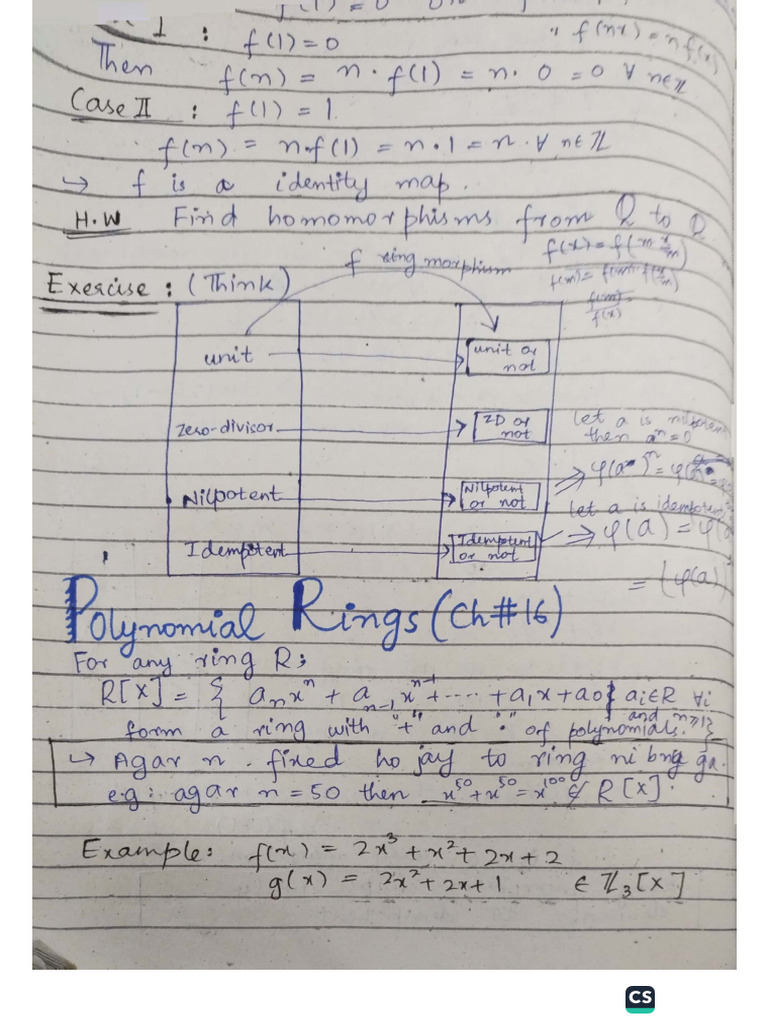 I : f(1) = 0
Then f(n) = n · f(1) = n · 0 = 0 ∀ n∈ℤ
" f(nx) = n f(x)
Case II : f(1) = 1
f(n) = n·f(1) = n·1 = n · ∀ n∈ℤ
↳ f is a identity map.
H.W Find homomorphisms from Q to Q
Exercise : (Think)
f ring morphism
unit
unit or
not
zero-divisor
ZD or
not
Let a is nilpotent
then aⁿ=0
Nilpotent
Nilpotent
or not
Let a is idempotent
Idempotent
Idempotent
or not
⇒ φ(a) = φ(
= (φ(a)
Polynomial Rings (Ch#16)
For any ring R;
R[x] = { aₙxⁿ + aₙ₋₁xⁿ⁻¹ + ···· + a₁x + a0 | aᵢ∈R ∀i
and n≥1}
form a ring with "+" and "·" of polynomials.
↳ Agar n fixed ho jay to ring ni bng ga.
e.g: agar n = 50 then x⁵⁰+x⁵⁰=x¹⁰⁰ ∉ R[x].
Example: f(x) = 2x³ + x² + 2x + 2
g(x) = 2x² + 2x + 1 ∈ ℤ₃[x]
CS